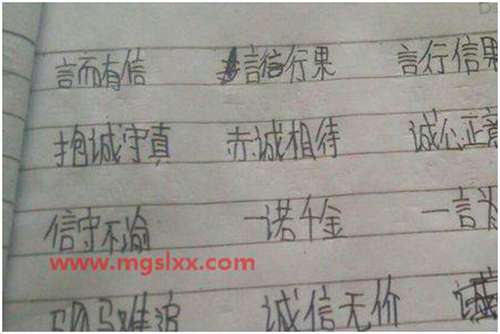 言而有信 言信行果 言行信果
抱诚守真 赤诚相待 诚心正意
信守不渝 一诺千金 一言为
www.mgslxx.com
驷马难追 诚信无价 诚